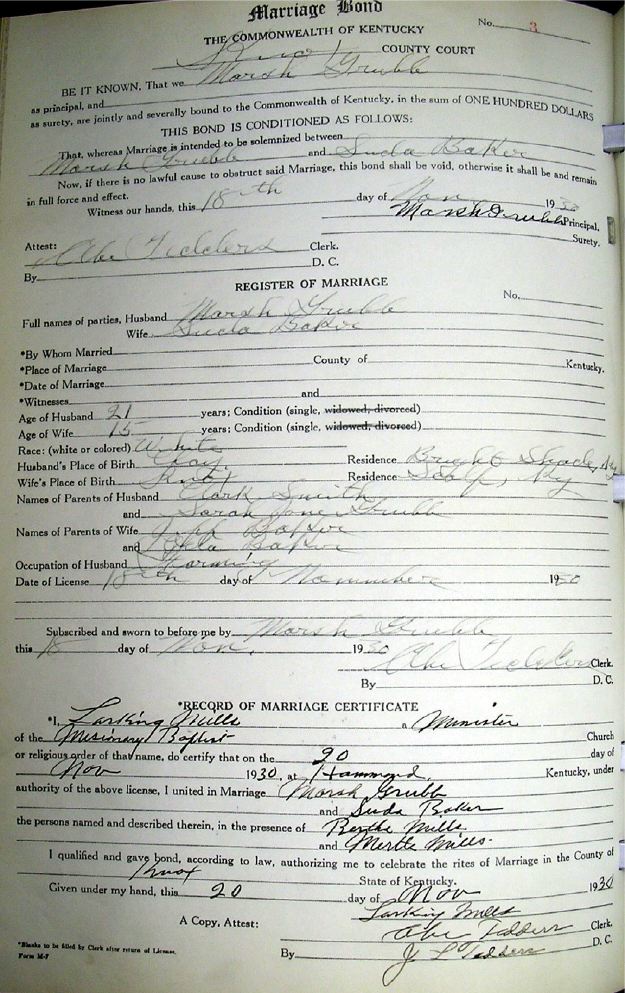 Marriage Bond
No. 3
THE COMMONWEALTH OF KENTUCKY
Knox COUNTY COURT
BE IT KNOWN, That we Marsh Grubb
as principal, and
as surety, are jointly and severally bound to the Commonwealth of Kentucky, in the sum of ONE HUNDRED DOLLARS
THIS BOND IS CONDITIONED AS FOLLOWS:
That, whereas Marriage is intended to be solemnized between
Marsh Grubb and Suda Baker
Now, if there is no lawful cause to obstruct said Marriage, this bond shall be void, otherwise it shall be and remain
in full force and effect.
Witness our hands, this 18th day of Nov 1930
Marsh Grubb Principal.
Surety.
Attest:
Abe Tedders Clerk.
By D. C.
REGISTER OF MARRIAGE
No.
Full names of parties, Husband Marsh Grubb
Wife Suda Baker
*By Whom Married
*Place of Marriage County of Kentucky.
*Date of Marriage
*Witnesses and
Age of Husband 21 years; Condition (single, widowed, divorced)
Age of Wife 15 years; Condition (single, widowed, divorced)
Race: (white or colored) White
Husband's Place of Birth Clay. Residence Bright Shade, Ky
Wife's Place of Birth Knox Residence Scalf, Ky
Names of Parents of Husband Clark Smith
and Sarah Jane Grubb
Names of Parents of Wife Baker
and Baker
Occupation of Husband Farming
Date of License 18th day of November 1930
Subscribed and sworn to before me by Marsh Grubb
this 18 day of Nov. 1930
Abe Tedders Clerk.
By D. C.
*RECORD OF MARRIAGE CERTIFICATE
*I, Larking Mills a Minister
of the Misionery Baptist Church
or religious order of that name, do certify that on the 20 day of
Nov 1930, at Hammond, Kentucky, under
authority of the above license, I united in Marriage Marsh Grubb
and Suda Baker
the persons named and described therein, in the presence of Berthe Mills
and Mertle Mills.
I qualified and gave bond, according to law, authorizing me to celebrate the rites of Marriage in the County of
Knox State of Kentucky.
Given under my hand, this 20 day of Nov 1930
Larking Mills
A Copy, Attest: Abe Tedders Clerk.
By J L Tedders D. C.
*Blanks to be filled by Clerk after return of License.
Form M-7